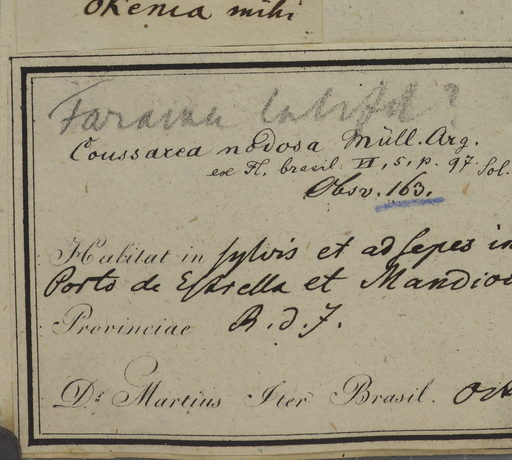 Okenia mihi
Faramea latifol?
Coussarea nodosa Müll. Arg.
ex Fl. brasil. VI, 5, p. 97. Sol.
Obsv. 163.
Habitat in sylvis et ad sepes in
Porto de Estrella et Mandioc
Provinciae R. d. J.
Dr. Martius Iter Brasil. Oct